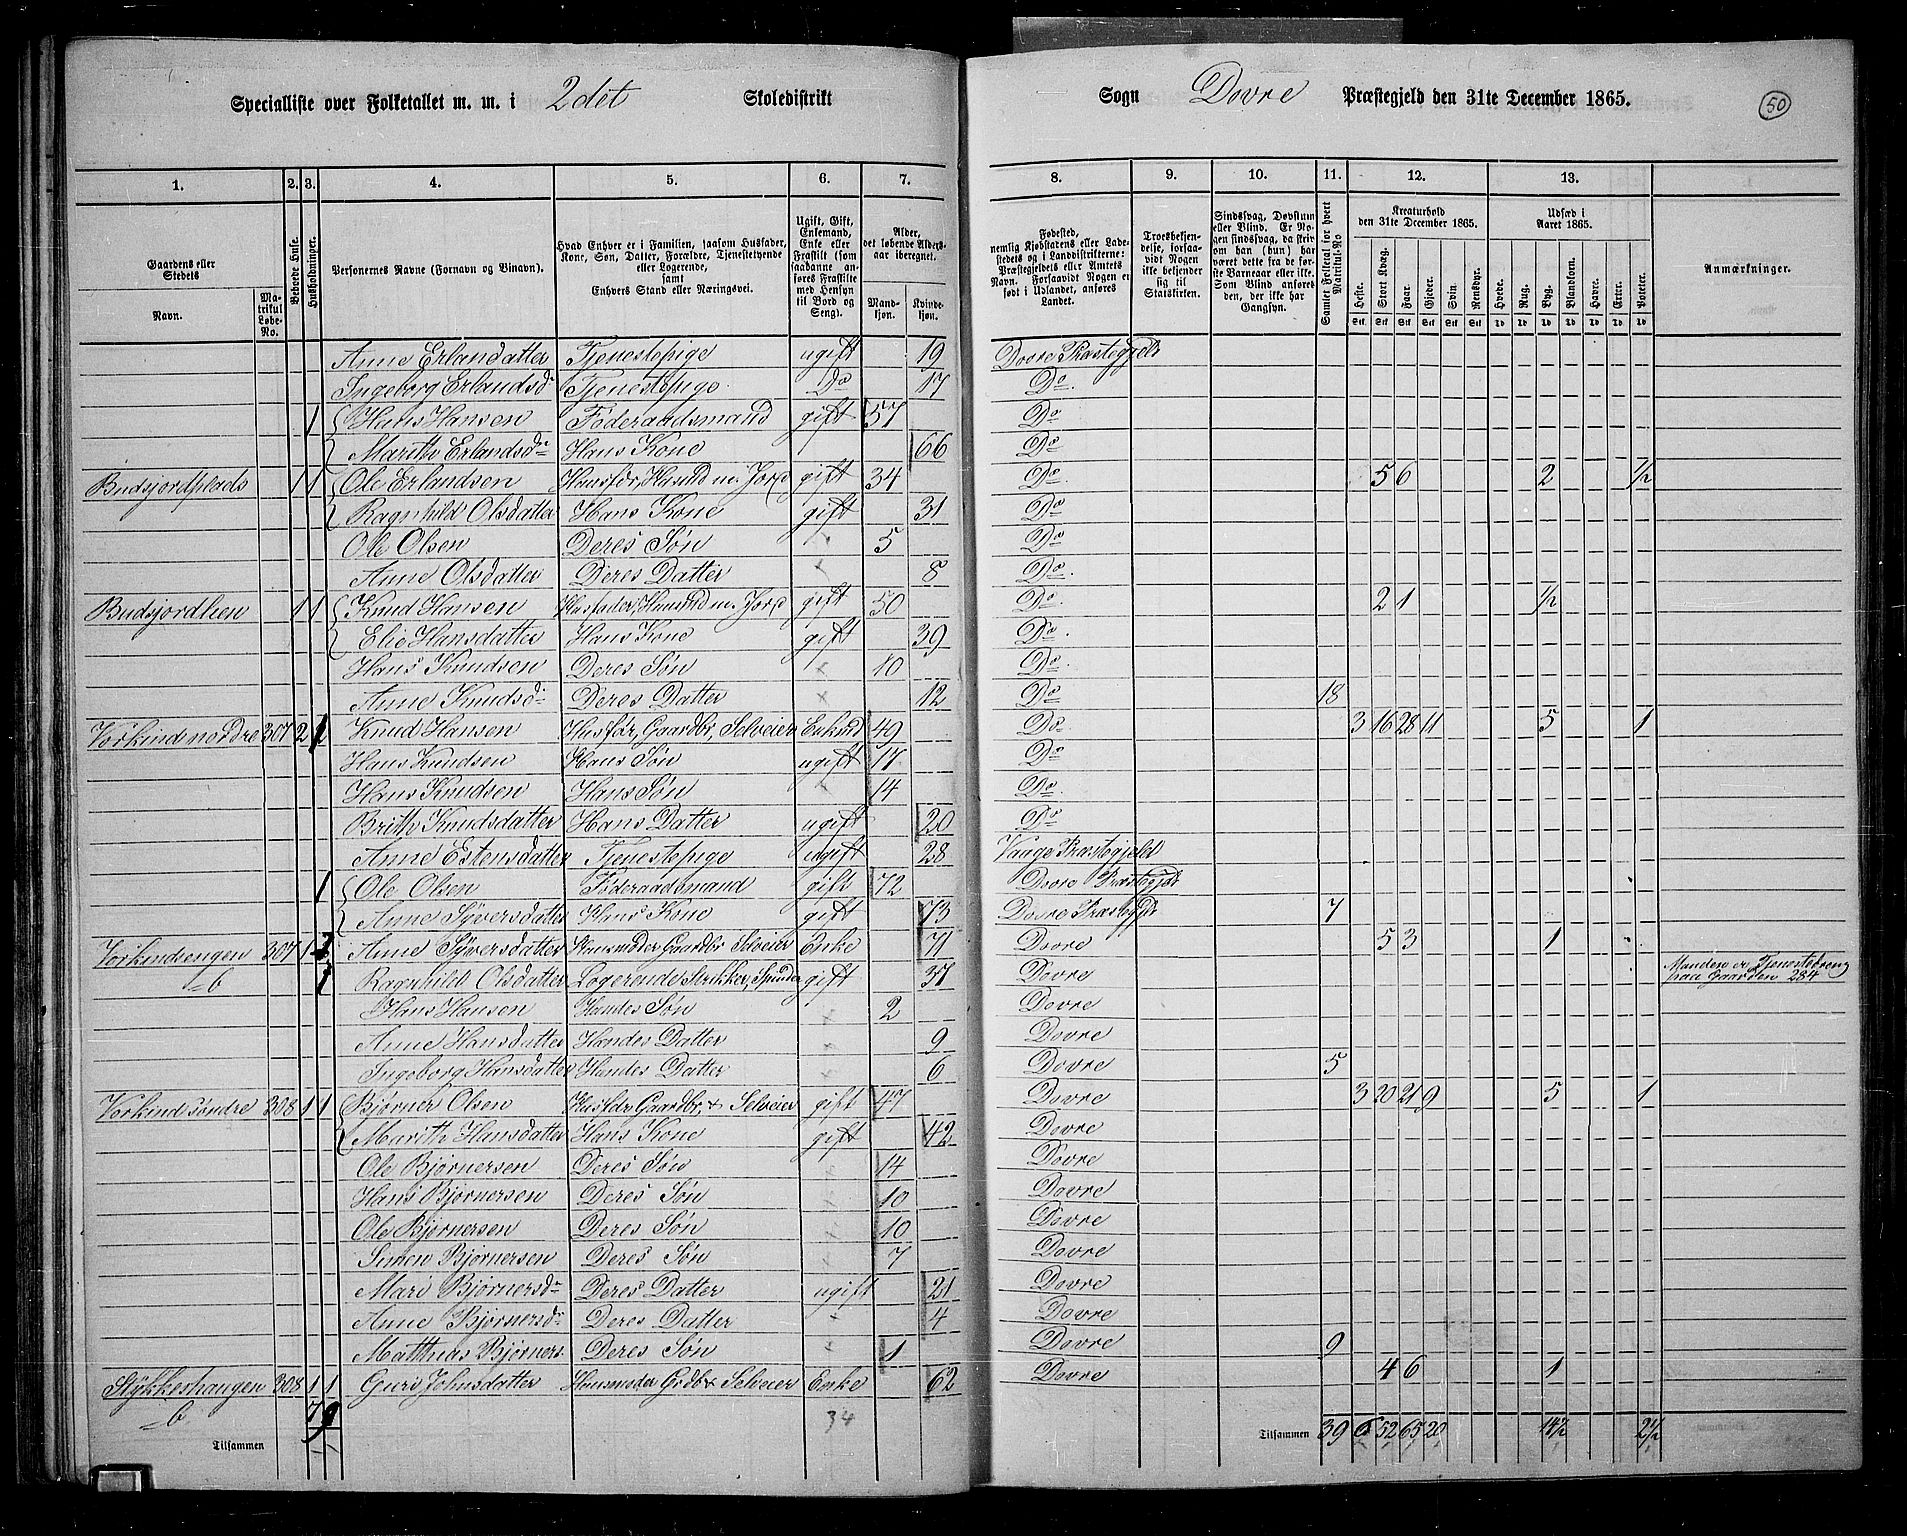 Specialliste over Folketallet m. m. i 2det Skoledistrikt
Sogn Dovre Præstegjeld den 31te December 1865.
50
1. 2. 3. 4. 5. 6. 7. 8. 9. 10. 11. 12. 13.
Gaardens eller Stedets
Navn.
Matrikul Løbe-No.
Beboede Huse.
Husholdninger.
Personernes Navne (Fornavn og Binavn).
Hvad Enhver er i Familien, saasom Husfader, Kone, Søn, Datter, Forældre, Tjenestetyende eller Logerende, samt Enhvers Stand eller Næringsvei.
Ugift, Gift, Enkemand, Enke eller Fraskilt (som saadanne anføres Fraskilte med Hensyn til Bord og Seng).
Alder, det løbende Aldersaar iberegnet.
Mandkjøn.
Kvindekjøn.
Fødested, nemlig Kjøbstadens eller Ladestedets og i Landdistrikterne: Præstegjeldets eller Amtets Navn. Forsaavidt Nogen er født i Udlandet, anføres Landet.
Troesbekjendelse, forsaavidt Nogen ikke bekjender sig til Statskirken.
Sindssvag, Døvstum eller Blind. Er Nogen sindssvag, da skrives om han (hun) har været dette fra de første Barneaar eller ikke. Som Blind anføres den, der ikke har Gangsyn.
Samlet Folketal for hvert Matrikul-No
Kreaturhold den 31te December 1865.
Heste. Stort Kvæg. Faar. Gjeder. Svin. Rensdyr.
Udsæd i Aaret 1865.
Hvede. Rug. Byg. Blandkorn. Havre. Erter. Poteter.
Anmærkninger.
Anne Erlandatter Tjenestepige ugift 19 Dovre Præstegjeld
Ingeborg Erlandsd Tjenestepige Do 17 Do
1 Hans Hansen Føderaadsmand gift 57 Do
Marith Erlandsd Hans Kone 66 Do
Budsjordplads 1 1 Ole Erlandsen Husfdr, Husmd m. Jord gift 34 Do 5 6 2 1/2
Ragnhild Olsdatter Hans Kone gift 31 Do
Ole Olsen Deres Søn 5 Do
Anne Olsdatter Deres Datter 8 Do
Budsjordlien 1 1 Knud Hansen Husfader, Husmd m. Jord gift 50 Do 2 1 1/2
Elie Hansdatter Hans Kone gift 39 Do
Hans Knudsen Deres Søn 10 Do
Anne Knudsd Deres Datter 12 Do 18
Vorkind nordre 307 2 1 Knud Hansen Husfdr, Gaardbr, Selveier Enkmd 49 Do 3 16 28 11 5 1
Hans Knudsen Hans Søn ugift 17 Do
Hans Knudsen Hans Søn 14 Do
Brith Knudsdatter Hans Datter ugift 20 Do
Anne Estensdatter Tjenestepige ugift 28 Vaage Præstegjeld
1 Ole Olsen Føderaadsmand gift 72 Dovre Præstegjd
Anne Syversdatter Hans Kone gift 73 Dovre Præstegjd 7
Vorkindsengen 307 1 Anne Syversdatter Husmoder Gaardbr Selveier Enke 71 Dovre 5 3 1
b Ragnhild Olsdatter Logerende Strikker, Spinder gift 37 Dovre Manden er Tjenestedreng paa Gaarden 284
Hans Hansen Hendes Søn 2 Dovre
Anne Hansdatter Hendes Datter 9 Dovre
Ingeborg Hansdatter Hendes Datter 6 Dovre 5
Vorkind søndre 308 1 1 Bjørner Olsen Husfdr Gaardbr + Selveier gift 47 Dovre 3 20 21 9 5 1
Marith Hansdatter Hans Kone gift 42 Dovre
Ole Bjørnersen Deres Søn 14 Dovre
Hans Bjørnersen Deres Søn 10 Dovre
Ole Bjørnersen Deres Søn 10 Dovre
Simen Bjørnersen Deres Søn 7 Dovre
Mari Bjørnersd Deres Datter ugift 21 Dovre
Anne Bjørnersd Deres Datter 4 Dovre
Matthias Bjørners. Deres Søn 1 Dovre 9
Stykkerhaugen 308 1 1 Guri Johnsdatter Husmoder Grdbr Selveier Enke 62 Dovre 4 6 1
b 7 9 34
Tilsammen
Tilsammen 39 6 52 65 20 14 1/2 2 1/2